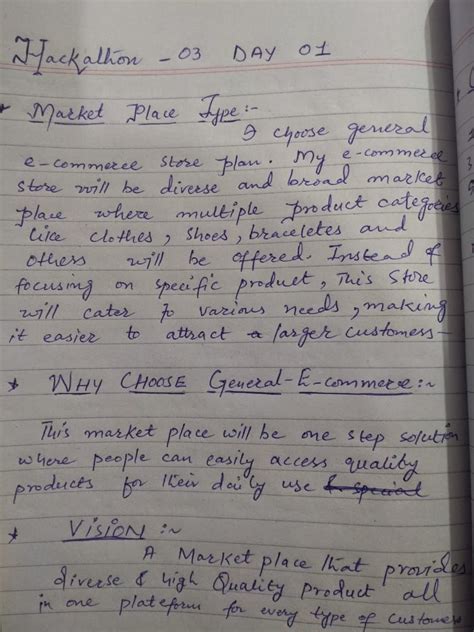 Hackathon - 03 DAY 01
* Market Place Type:-
I choose general
e-commerce store plan. My e-commerce
store will be diverse and broad market
place where multiple product categories
like clothes, shoes, braceletes and
others will be offered. Instead of
focusing on specific product, This store
will cater to various needs, making
it easier to attract a larger customers-
* WHY CHOOSE General-E-commerce:~
This market place will be one step solution
where people can easily access quality
products for their daily use & special
* VISION:~
A Market place that provides
diverse & high Quality product all
in one plateform for every type of customers